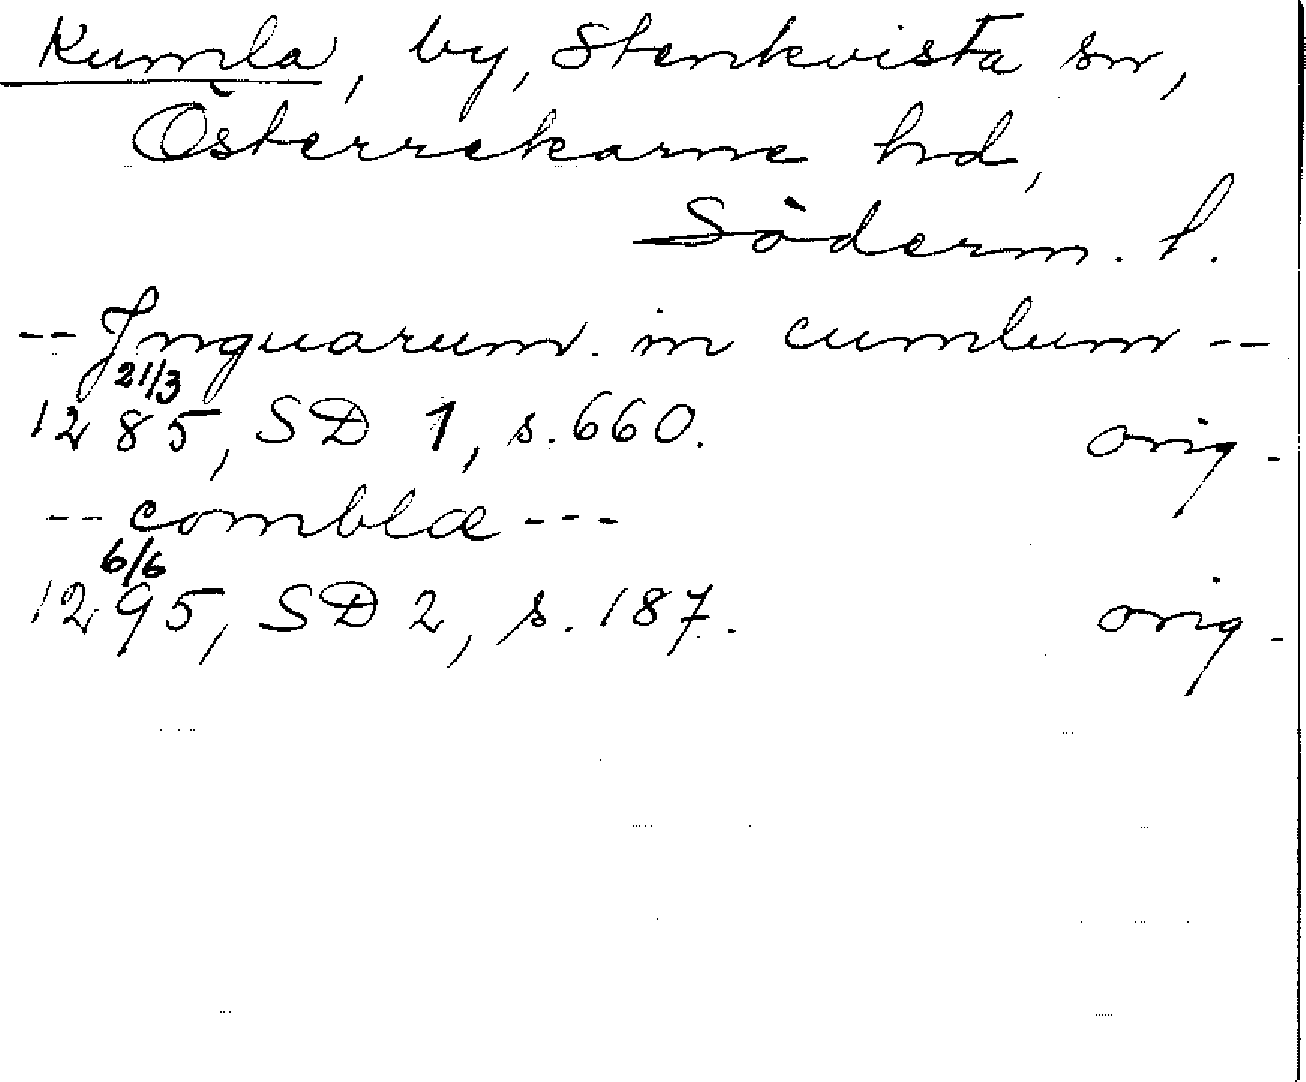 Kumla, by, Stenkvista sn,
Österrekarne hd,
Söderm. l.
-- Jnguarum in cumlum --
21/3
1285, SD 1, s. 660. orig.
-- comblæ ---
6/6
1295, SD 2, s. 187. orig.